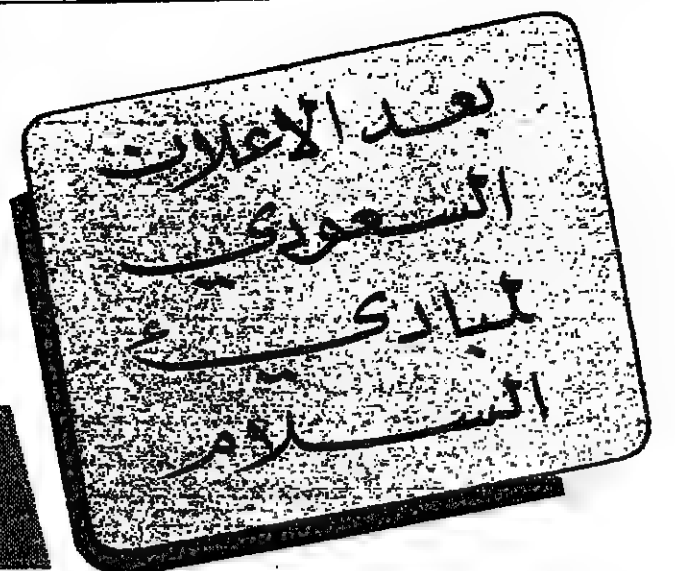 بعد الاعلان
السعودي
لمبادئ
السلام